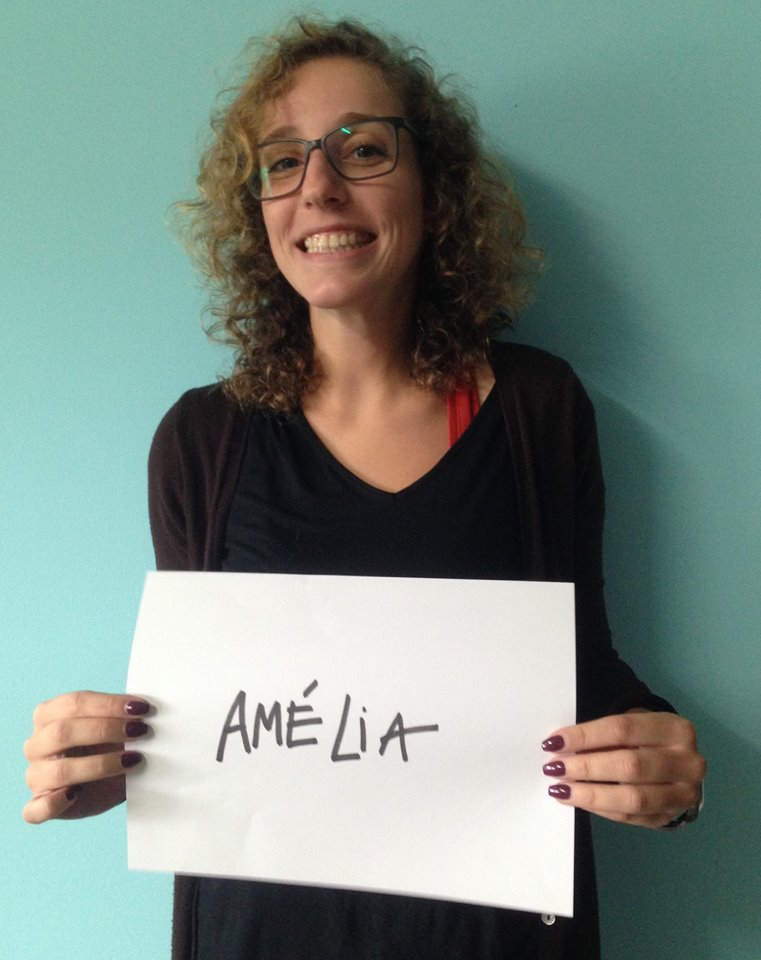 AMÉLiA